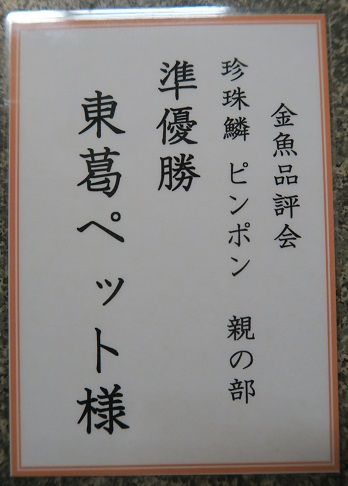 金魚品評会
珍珠鱗 ピンポン 親の部
準優勝
東葛ペット様